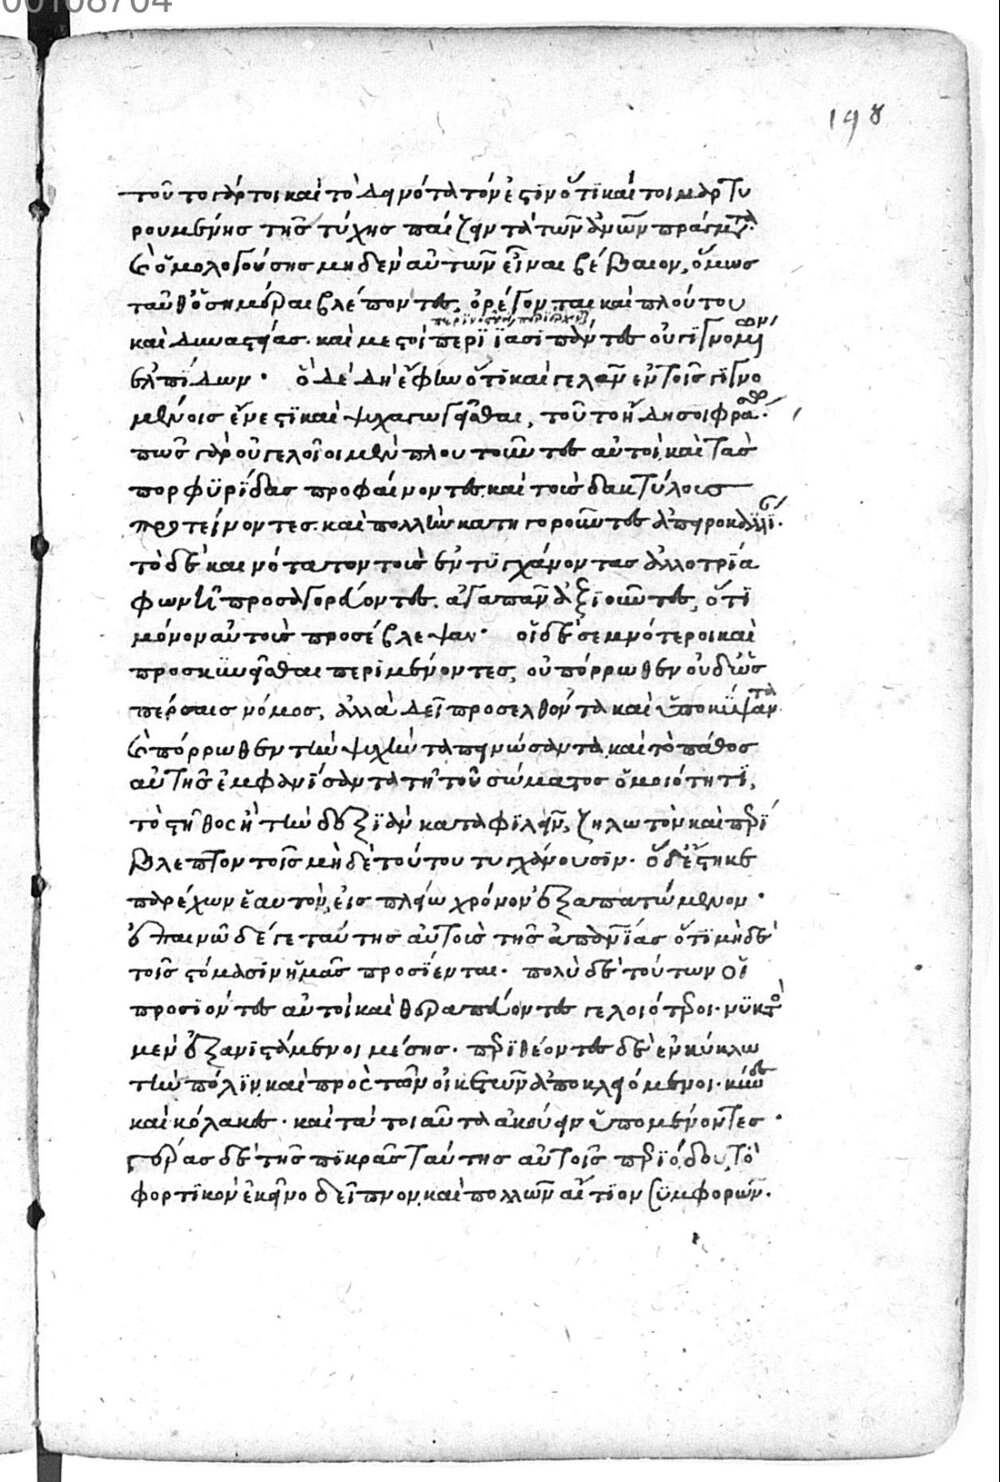 00108704
198
τοῦτο γάρ τοι καὶ τὸ δεινότατόν ἐστιν ὅτι καίτοι μαρτυ
ρουμένης τῆς τύχης παίζειν τὰ τῶν ἀνων πράγματα.
καὶ ὁμολογούσης μηδὲν αὐτῶν εἶναι βέβαιον, ὅμως
ταῦθ' ὁσημέραι βλέποντες, ὀρέγονται καὶ πλούτου
καὶ δυναστείας. καὶ μεστοὶ περιΐασι πάντες οὐ γιγνομένων
ἐλπίδων. ὃ δὲ δὴ ἔφην ὅτι καὶ γελᾶν ἐν τοῖς γιγνο
μένοις ἔνεστι καὶ ψυχαγωγεῖσθαι, τοῦτο ἤδη σοι φράσω.
πῶς γὰρ οὐ γελοῖοι μὲν πλουτοῦντες αὐτοὶ καὶ τὰς
πορφυρίδας προφαίνοντες καὶ τοὺς δακτύλους
προτείνοντες. καὶ πολλὴν κατηγοροῦντες ἀπειροκαλίαν.
τὸ δὲ καινότατον τοὺς ἐντυγχάνοντας ἀλλοτρία
φωνῆ προσαγορεύοντες. ἀγαπᾶν ἀξιοῦντες, ὅτι
μόνον αὐτοὺς προσέβλεψαν. οἱ δὲ σεμνότεροι καὶ
προσκυνεῖσθαι περιμένοντες, οὐ πόρρωθεν οὐδ' ὡς
πέρσαις νόμος, ἀλλὰ δεῖ προσελθόντα καὶ ὑποκύψαντα
καὶ πόρρωθεν τὴν ψυχὴν ταπεινώσαντα καὶ τὸ πάθος
αὐτῆς ἐμφανίσαντα τῆ τοῦ σώματος ὁμοιότητι,
τὸ στῆθος ἢ τὴν δεξιὰν καταφιλεῖν, ζηλωτὸν καὶ περί
βλεπτον τοῖς μηδὲ τούτου τυγχάνουσιν. ὁ δ' ἕστηκε
παρέχων ἑαυτὸν εἰς πλείω χρόνον ἐξαπατώμενον.
ἐπαινῶ δέ γε ταύτης αὐτοὺς τῆς ἀπανθρωπίας ὅτι μηδὲ
τοῖς στόμασιν ἡμᾶς προσίενται. πολὺ δὲ τούτων οἱ
προσιόντες αὐτοὶ καὶ θεραπεύοντες γελοιότεροι. νυκτὸς
μὲν ἐξανιστάμενοι μέσης. περιθέοντες δὲ ἐν κύκλω
τὴν πόλιν καὶ πρὸς τῶν οἰκετῶν ἀποκλειόμενοι. κύνες
καὶ κόλακες. καὶ τὰ τοιαῦτα ἀκούειν ὑπομένοντες.
γέρας δὲ τῆς πικρᾶς ταύτης αὐτοῖς περιόδου, τὸ
φορτικὸν ἐκεῖνο δεῖπνον καὶ πολλῶν αἴτιον συμφορῶν.